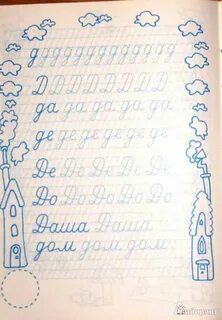 д д д д д д д д д д д д
Д Д Д Д Д Д Д
да да да да да да
де де де де де де
Де Де Де Де Де
До До До До До
Даша Даша
дом дом дом